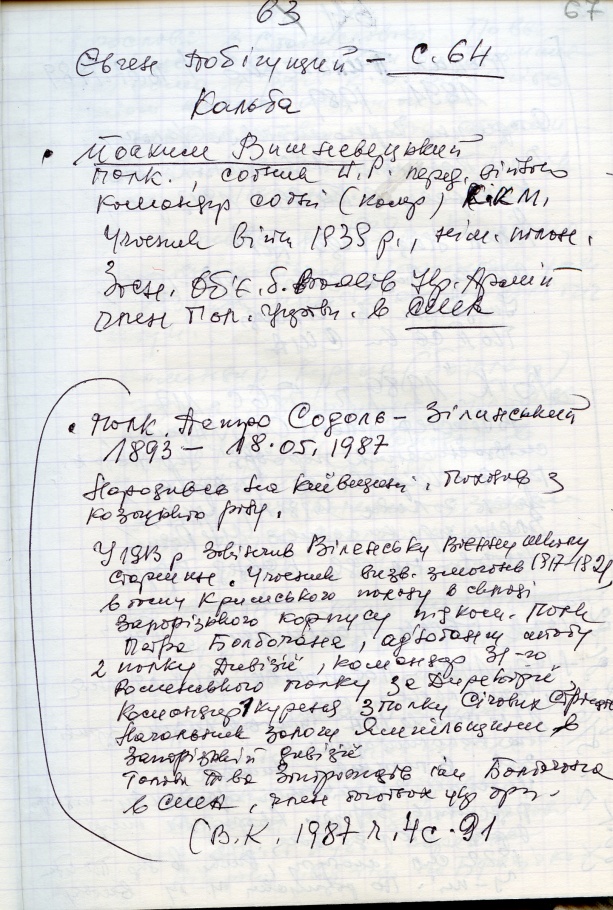 63
67
Євген Побігущий – с. 64
Кальба
• Йоаким Вишневецький
полк., сотник перед. війною
командир сотні (комр) ККМ.
Учасник війни 1939 р., нім. полон.
Зосн. Об'є. б. вояків Укр. Армій
член Пол. Уцтв. в США
• полк. Петро Содоль – Зілинський
1893 – 18.05.1987
Народився на Київщині. Походив з
козацького роду.
У 19 р закінчив Віленську Воєнну школу
старшин. Учасник визв. змагань 1917-
в тому Кримського походу в складі
Запорізького корпусу під ком. Полк
Петра Болбочана, ад'ютант штабу
2 полку Дивізії, командир 31-го
полку за Директорії,
командир 1 куреня 3 полку Січових
Начальник залоги Ямпільщини в
Запорізькій дивізії
Голова Т-ва Запорожців ім Болбочана
в США, член укр орг.
(В.К. 1987 ч. 4 с. 91